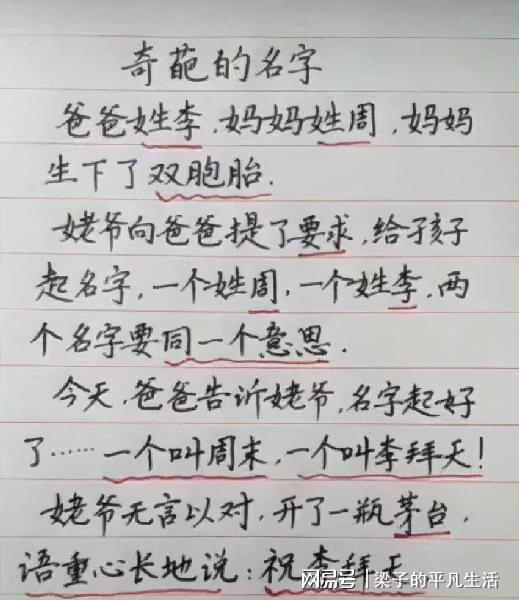 奇葩的名字
爸爸姓李,妈妈姓周,妈妈
生下了双胞胎.
姥爷向爸爸提了要求,给孩子
起名字,一个姓周,一个姓李,两
个名字要同一个意思.
今天,爸爸告诉姥爷,名字起好
了……一个叫周末,一个叫李拜天!
姥爷无言以对,开了一瓶茅台,
语重心长地说:祝李拜天
搜狐号|梁子的平凡生活